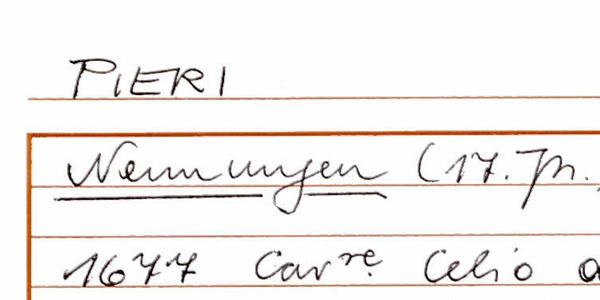 PIERI
Nennungen (17. Jh.
1677 Cav.re Celio